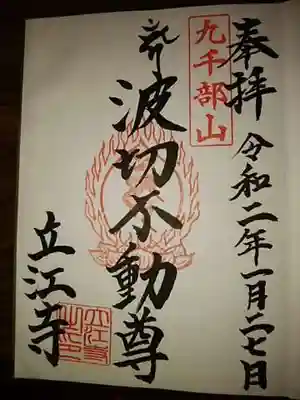 奉拝 令和二年一月二七日
九千部山
波切不動尊
立江寺